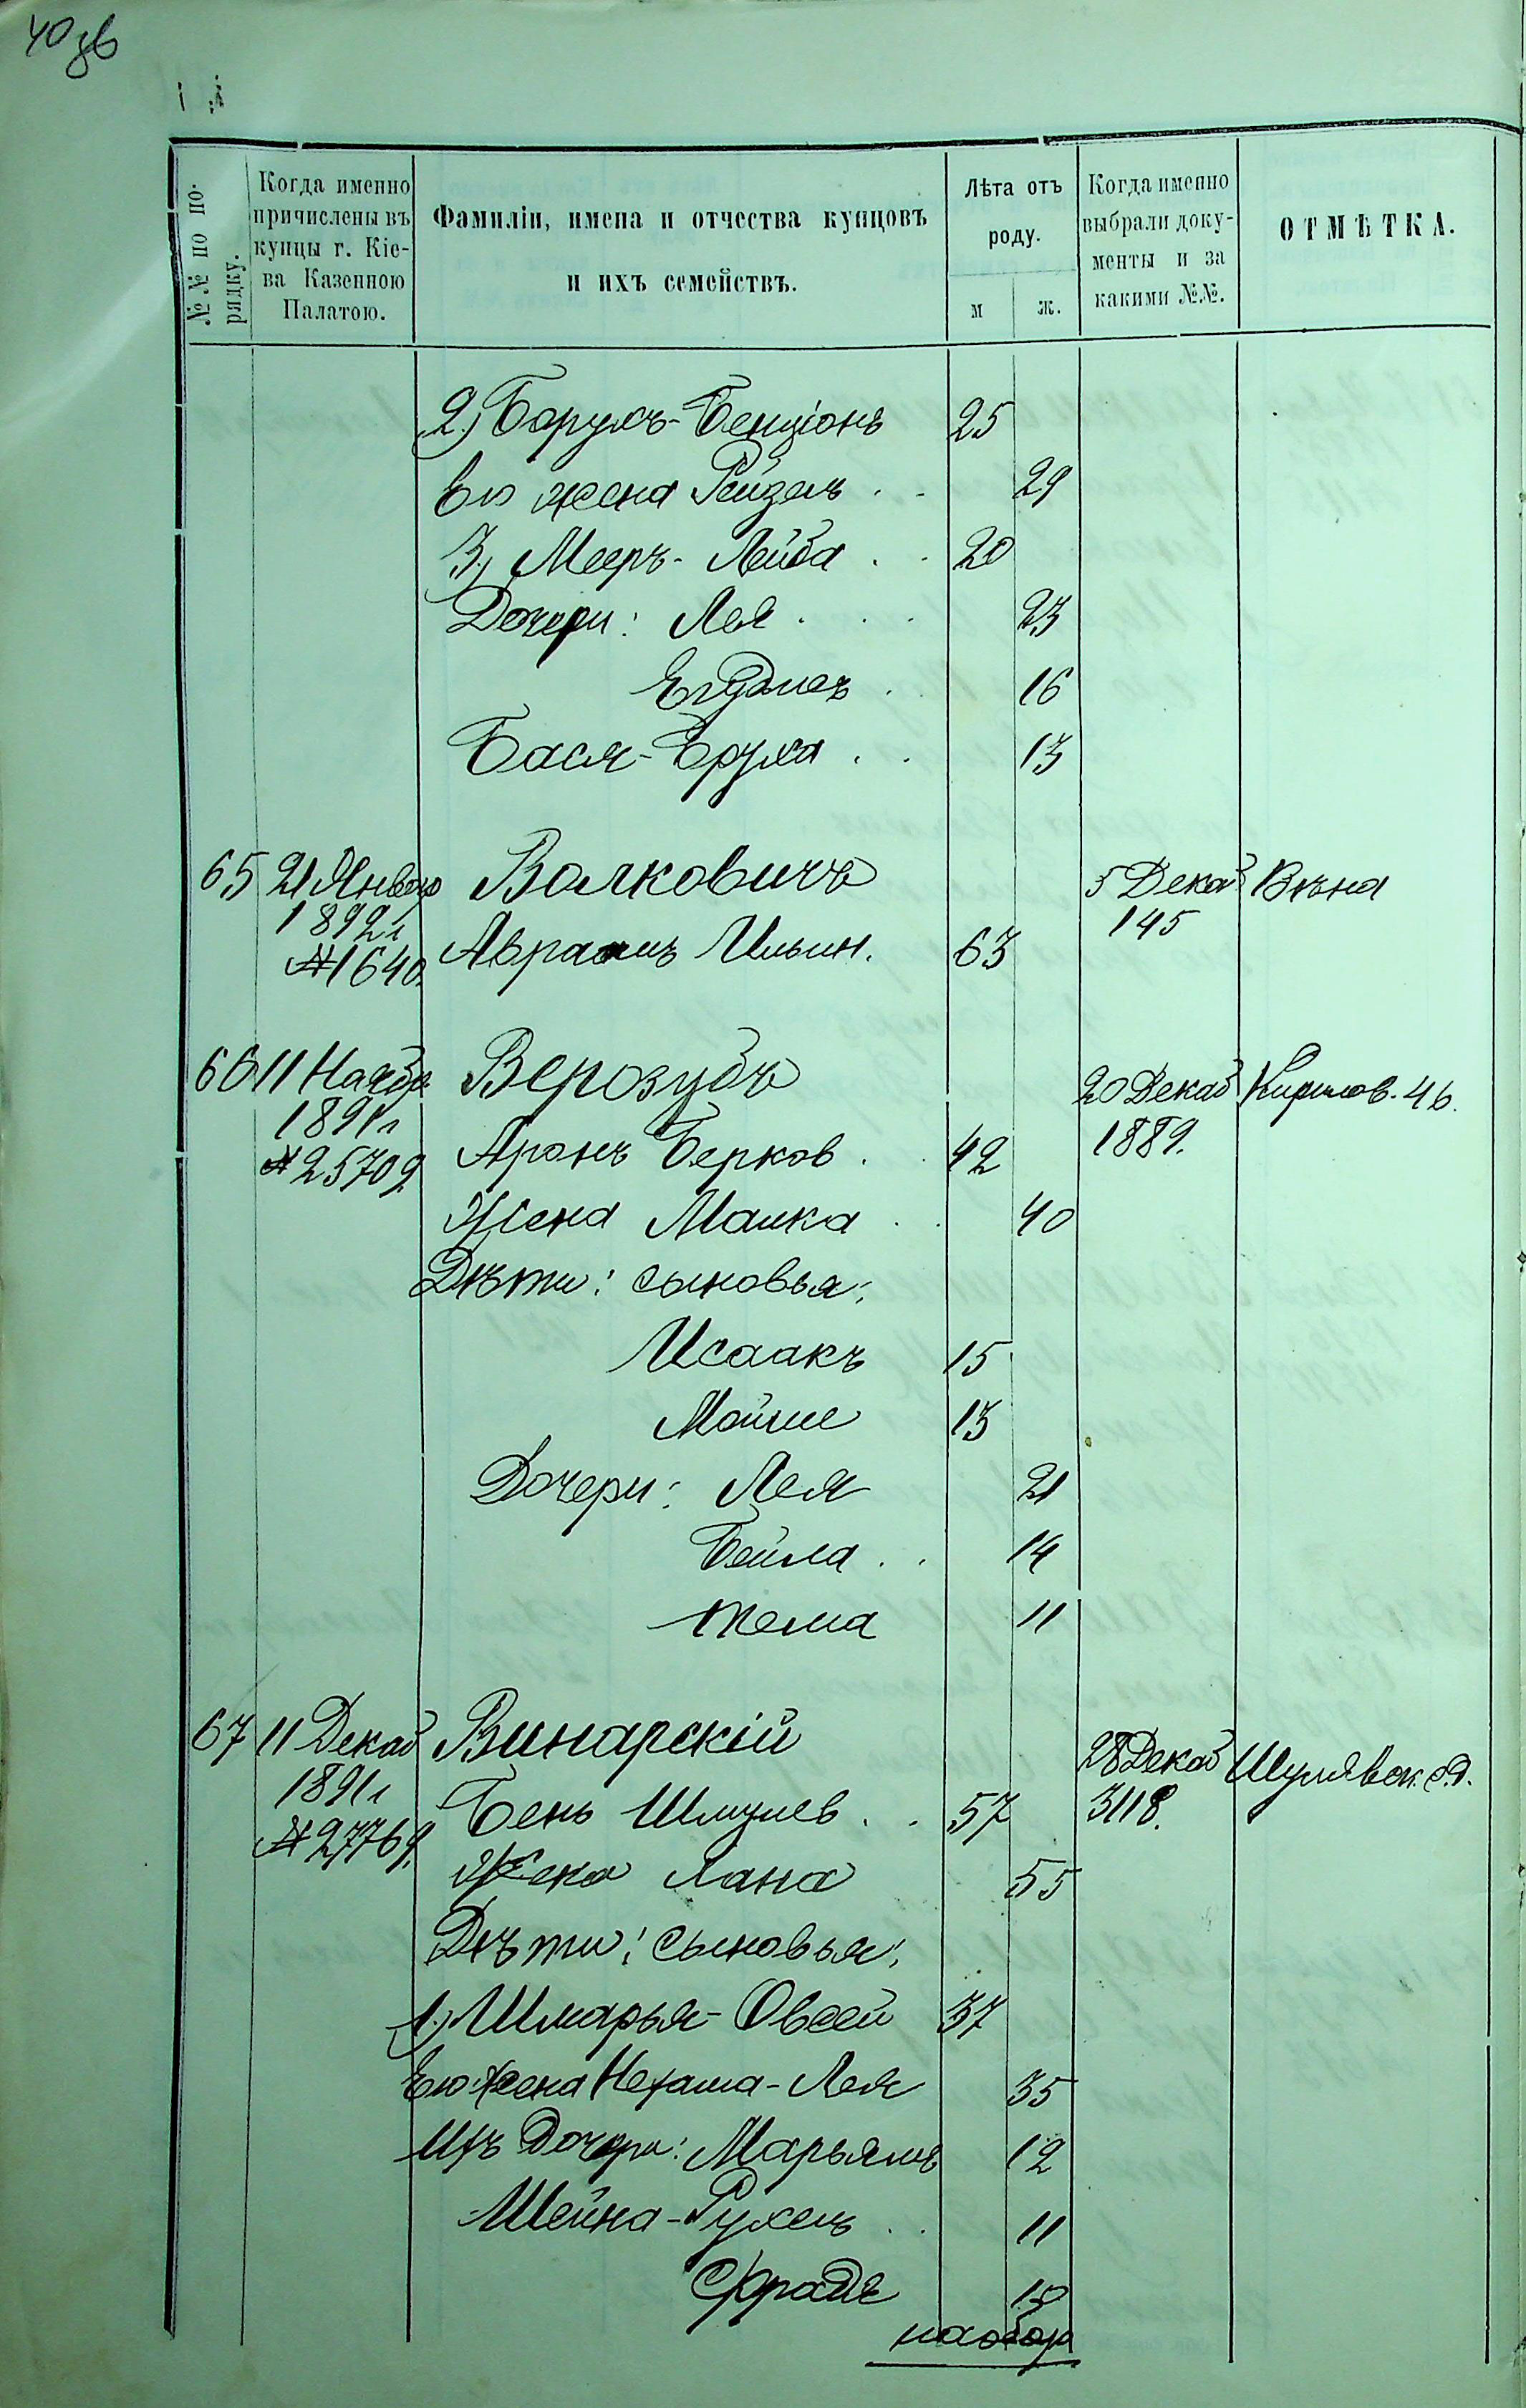 40 зв
№№ по по-
рядку.
Когда именно
причислены въ
купцы г. Кіе-
ва Казенною
Палатою.
Фамиліи, имена и отчества купцовъ
и ихъ семействъ.
Лѣта отъ
роду.
м ж.
Когда именно
выбрали доку-
менты и за
какими №№.
ОТМѢТКА.
2) Барухъ-Бенціонъ 25
Его жена Рейзель 29
3) Мееръ-Лейба 20
Дочери: Лея 23
16
Бася-Бруха 13
65 21 Январ Валковичъ 5 Декаб Вѣна
1892 г 145
№ 1640. Авраамъ Ильин. 63
66 11 Ноябр Верозубъ 20 Декаб Кирилов. 46.
1891 г 1889.
№ 25709. Аронъ Берков 42
Жена Малка 40
Дѣти: сыновья:
Исаакъ 15
Мойше 13
Дочери: Лея 21
Бейла 14
Тема 11
67 11 Декаб Винарскій 28 Декаб Шулявск. с.д.
1891 г Бень Шмулев 57 3118.
№ 27769.
Жена Хана 55
Дѣти: сыновья:
1) Шмарья-Овсей 37
Его жена Нехама-Лея 35
Ихъ дочери: Марьямъ 12
Шейна-Рухель 11
Фрадъ
на обор